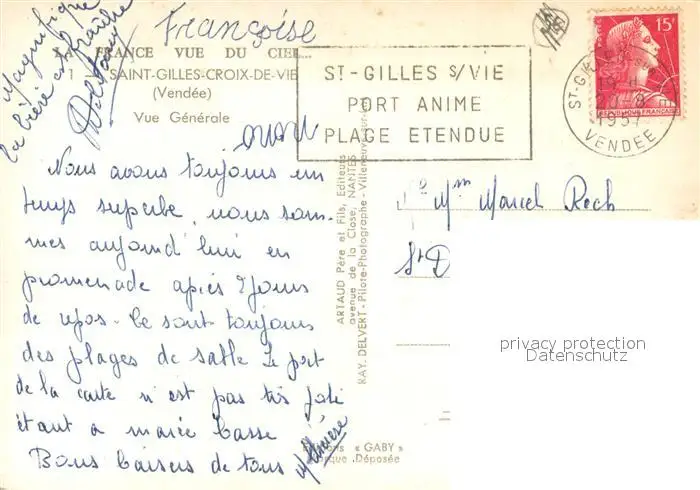 Françoise
Magnifique
La bière est fraîche
LA FRANCE VUE DU CIEL...
1 SAINT-GILLES-CROIX-DE-VIE
(Vendée)
Vue Générale
ST-GILLES S/VIE
PORT ANIME
PLAGE ETENDUE
15F
REPUBLIQUE FRANÇAISE
20-8
1957
VENDEE
Nous avons toujours un
temps superbe, nous som-
mes aujourd'hui en
promenade après 2 jours
de repos. Ce sont toujours
des plages de sable le port
de la carte n'est pas très joli
étant a marée basse
Bons baisers de tous
Thérèse
ARTAUD Père et Fils, Editeurs
avenue de la Close, NANTES
RAY. DELVERT - Pilote-Photographe - Villeneuve-sur-
« GABY »
Déposée
Mme Marcel Roch
St D
privacy protection
Datenschutz